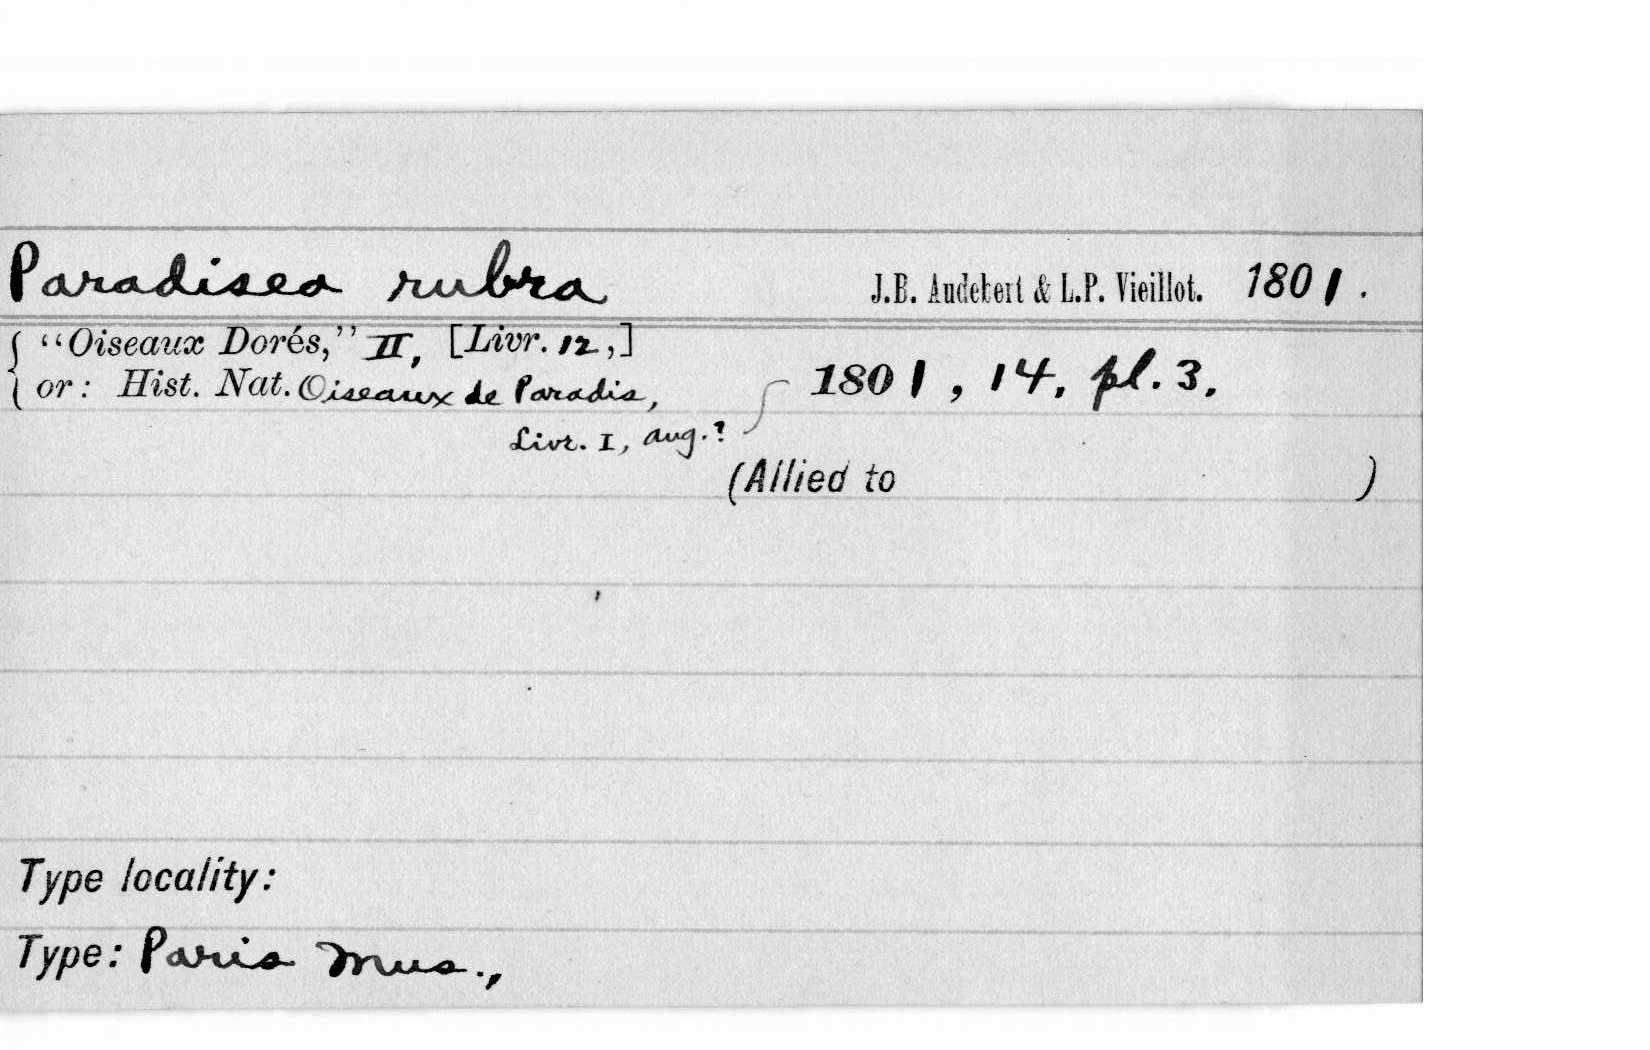 Paradisea rubra J.B. Audebert & L.P. Vieillot. 1801.
"Oiseaux Dorés," II, [Livr. 12,]
or: Hist. Nat. Oiseaux de Paradis, 1801, 14, pl. 3.
Livr. I, Aug.?
(Allied to )
Type locality:
Type: Paris Mus.,